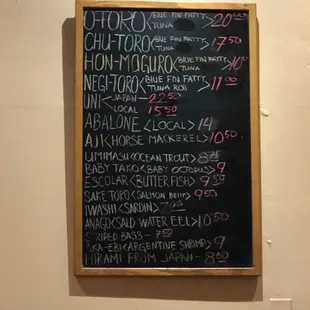 OTORO <BLUE FIN FATTY TUNA 20.00
CHU-TORO <BLUE FIN FATTY TUNA > 17.50
HON-MAGURO <BLUE FIN FATTY TUNA > 10
NEGI-TORO <BLUE FIN FATTY TUNA ROLL 11.00
UNI <JAPAN - 22.50
LOCAL 15.50
ABALONE <LOCAL> 14
AJI <HORSE MACKEREL> 10.50
UMIMASU <OCEAN TROUT> 8.75
BABY TAKO <BABY OCTOPUS> 9
ESCOLAR <BUTTER FISH> 9.50
SAKE TORO <SALMON BELLY 9.50
IWASHI <SARDIN>
ANAGO <SALD WATER EEL> 10.50
STRIPED BASS - 7.50
AKA-EBI <ARGENTINE SHRIMP> 9
HIRAMI FROM JAPAN - 8.50